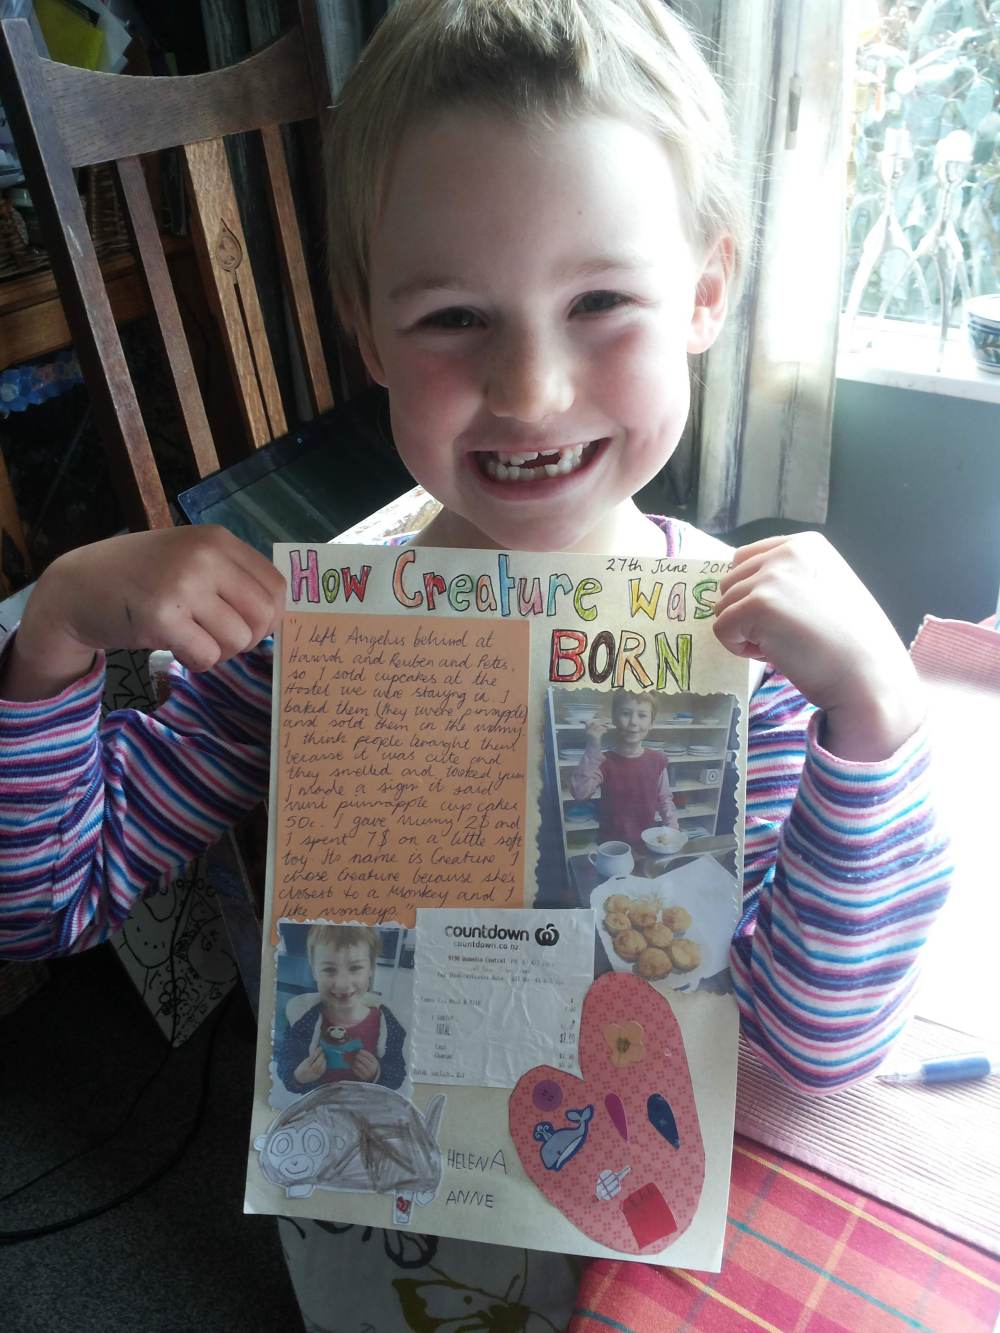 How Creature was
27th June 201
BORN
"I left Angelus behind at
Hannah and Reuben and Petes,
so I sold cupcakes at the
Hostel we were staying in. I
baked them (they were pinnapple)
and sold them in the
I think people braught them
because it was cute and
they smelled and looked yum
I made a sign it said
mini pinnapple cup cakes
50c. I gave Mumy 2$ and
I spent 7$ on a little soft
toy. Its name is Creature. I
chose Creature because she's
closest to a Monkey and I
like monkeys."
countdown
countdown.co.nz
TOTAL
Cash
Change
HELENA
ANNE